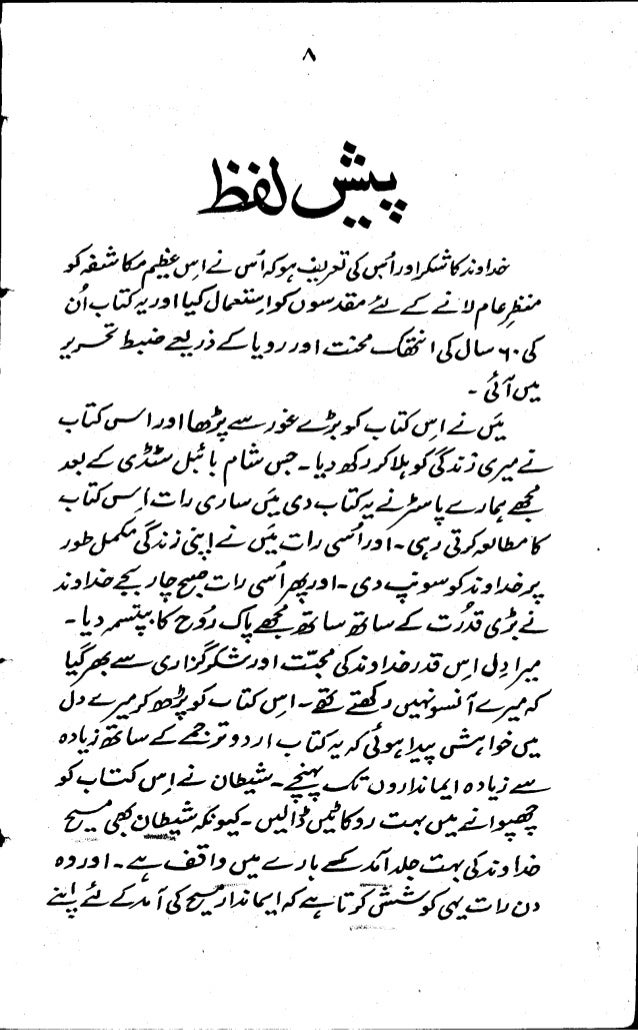 ۸
پیش لفظ
خداوند کا شکر اور اُس کی تعریف ہو کہ اُس نے اِس عظیم مکاشفہ کو
منظرِ عام لانے کے لئے مقدسوں کو استعمال کیا اور یہ کتاب اُن
کی ۶۰ سال کی انتھک محنت اور رویا کے ذریعے ضبط تحریر
میں آئی ۔
میَں نے اِس کتاب کو بڑے غور سے پڑھا اور اس کتاب
نے میری زندگی کو ہلا کر رکھ دیا ۔ جس شام بائبل سٹڈی کے بعد
مجھے ہمارے پاسٹر نے یہ کتاب دی میَں ساری رات اِس کتاب
کا مطالعہ کرتی رہی ۔ اور اُسی رات میَں نے اپنی زندگی مکمل طور
پر خداوند کو سونپ دی ۔ اور پھر اُسی رات صبح چار بجے خداوند
نے بڑی قدُرت کے ساتھ ساتھ مجھے پاک روُح کا بپتسمہ دیا ۔
میرا دِل اس قدر خداوند کی محبّت اور شکر گزاری سے بھر گیا
کہ میرے آنسو نہیں رکھتے تھے ۔ اِس کتاب کو پڑھ کر میرے دل
میں خواہش پیدا ہوئی کہ یہ کتاب اردو ترجمے کے ساتھ زیادہ
سے زیادہ ایمانداروں تک پہنچے ۔ شیطان نے اِس کتاب کو
چھپوانے میں بہت روکاٹیں ڈالیں ۔ کیونکہ شیطان بھی مسیح
خداوند کی بہت جلد آمد کے بارے میں واقف ہے ۔ اور وہ
دن رات یہی کوشش کرتا ہے کہ ایماندار مسیح کی آمد کے لئے اپنے